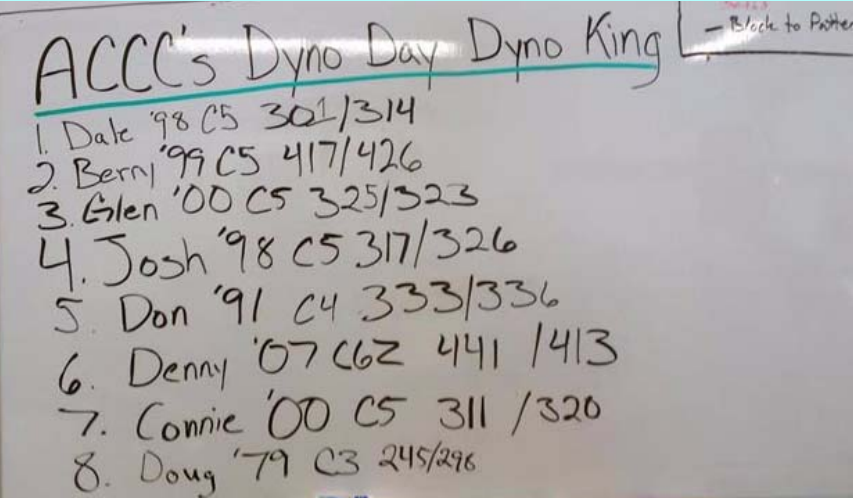 ACCC's Dyno Day Dyno King
- Block to
1. Dale '98 C5 301/314
2. Berny '99 C5 417/426
3. Glen '00 C5 325/323
4. Josh '98 C5 317/326
5. Don '91 C4 333/336
6. Denny '07 C6Z 441 /413
7. Connie '00 C5 311 /320
8. Doug '79 C3 245/296